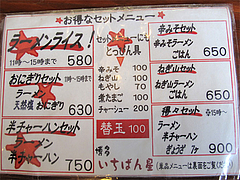 お得なセットメニュー
ラーメンライス！
11時～15時まで 580
おにぎりセット
ラーメン
天然塩おにぎり 630
半チャーハンセット
ラーメン
半チャーハン 750
セットに
とっぴん具
辛みそ 100
ねぎ山 100
もやし 70
煮たまご 100
チャーシュー 200
替玉 100
博多
いちばん屋
辛みそセット
辛みそラーメン
ごはん 650
ねぎ山セット
ねぎ山ラーメン
ごはん 650
得々セット
ラーメン
半チャーハン
ぎょうざ 900